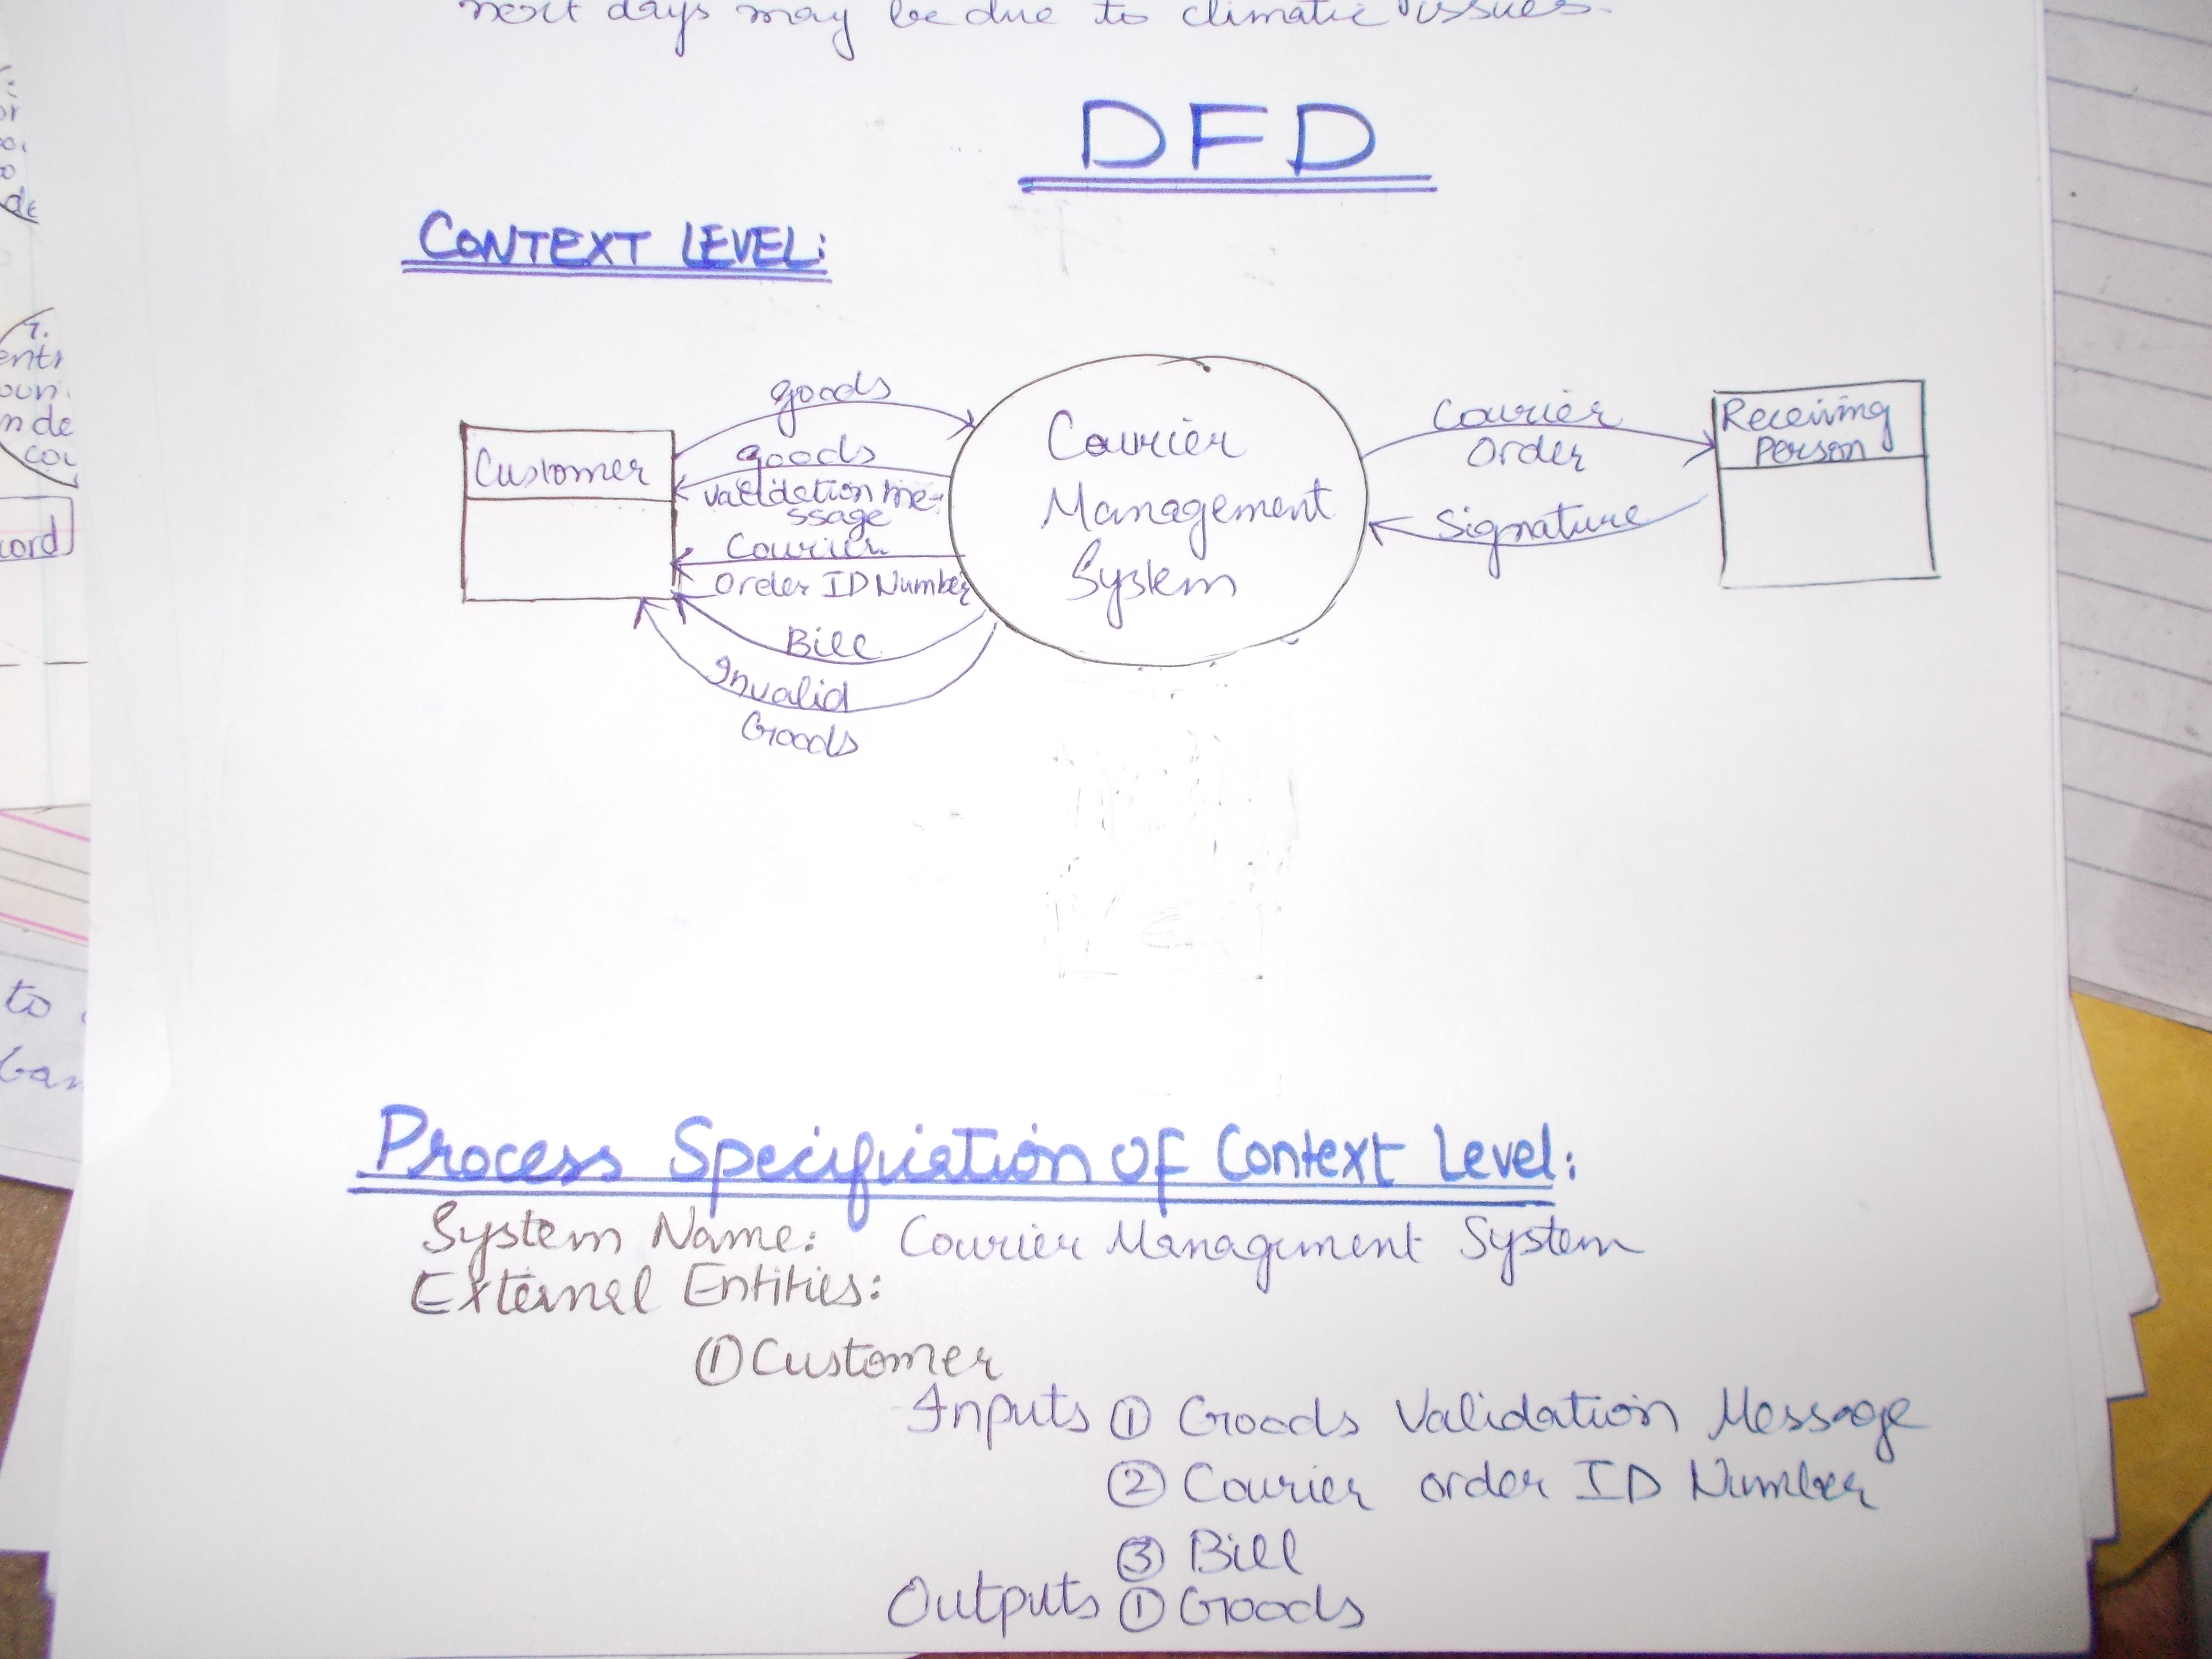 next days may be due to climatic issues.
DFD
CONTEXT LEVEL:
goods
Customer
goods
validation me-
ssage
Courier
Order ID Number
Bill
Invalid
Goods
Courier
Management
System
Courier
Order
Signature
Receiving
Person
Process Specification of Context Level:
System Name: Courier Management System
External Entities:
① Customer
Inputs ① Goods Validation Message
② Courier order ID Number
③ Bill
Outputs ① Goods
or
de
7.
n de
to